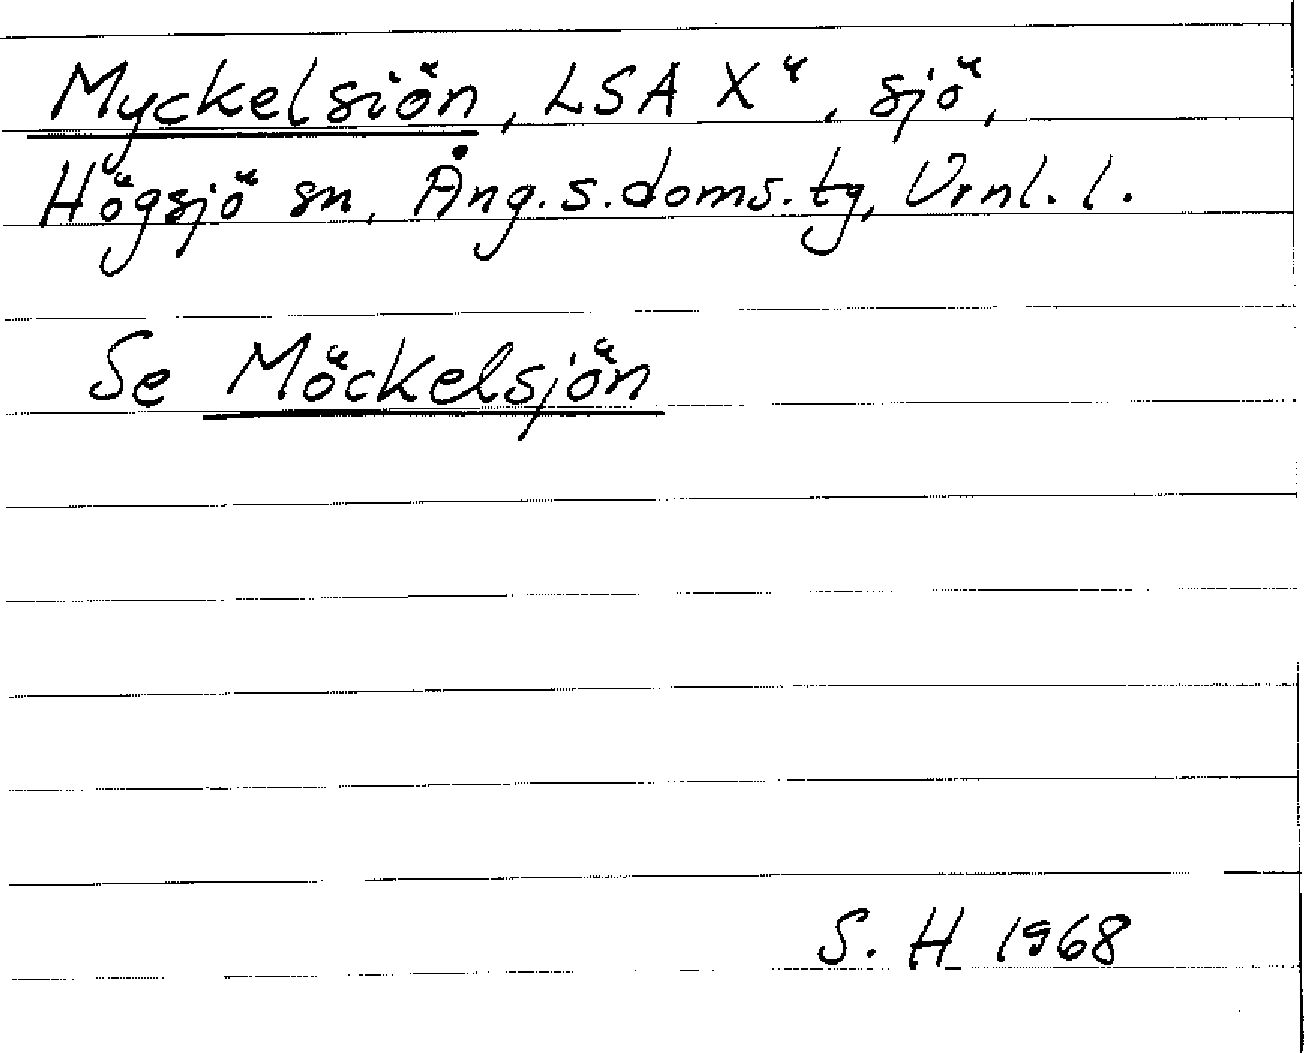 Myckelsiön, LSA X⁴, sjö,
Högsjö sn, Ång.s.doms.tg, Vrnl. l.
Se Möckelsjön
S. H 1968